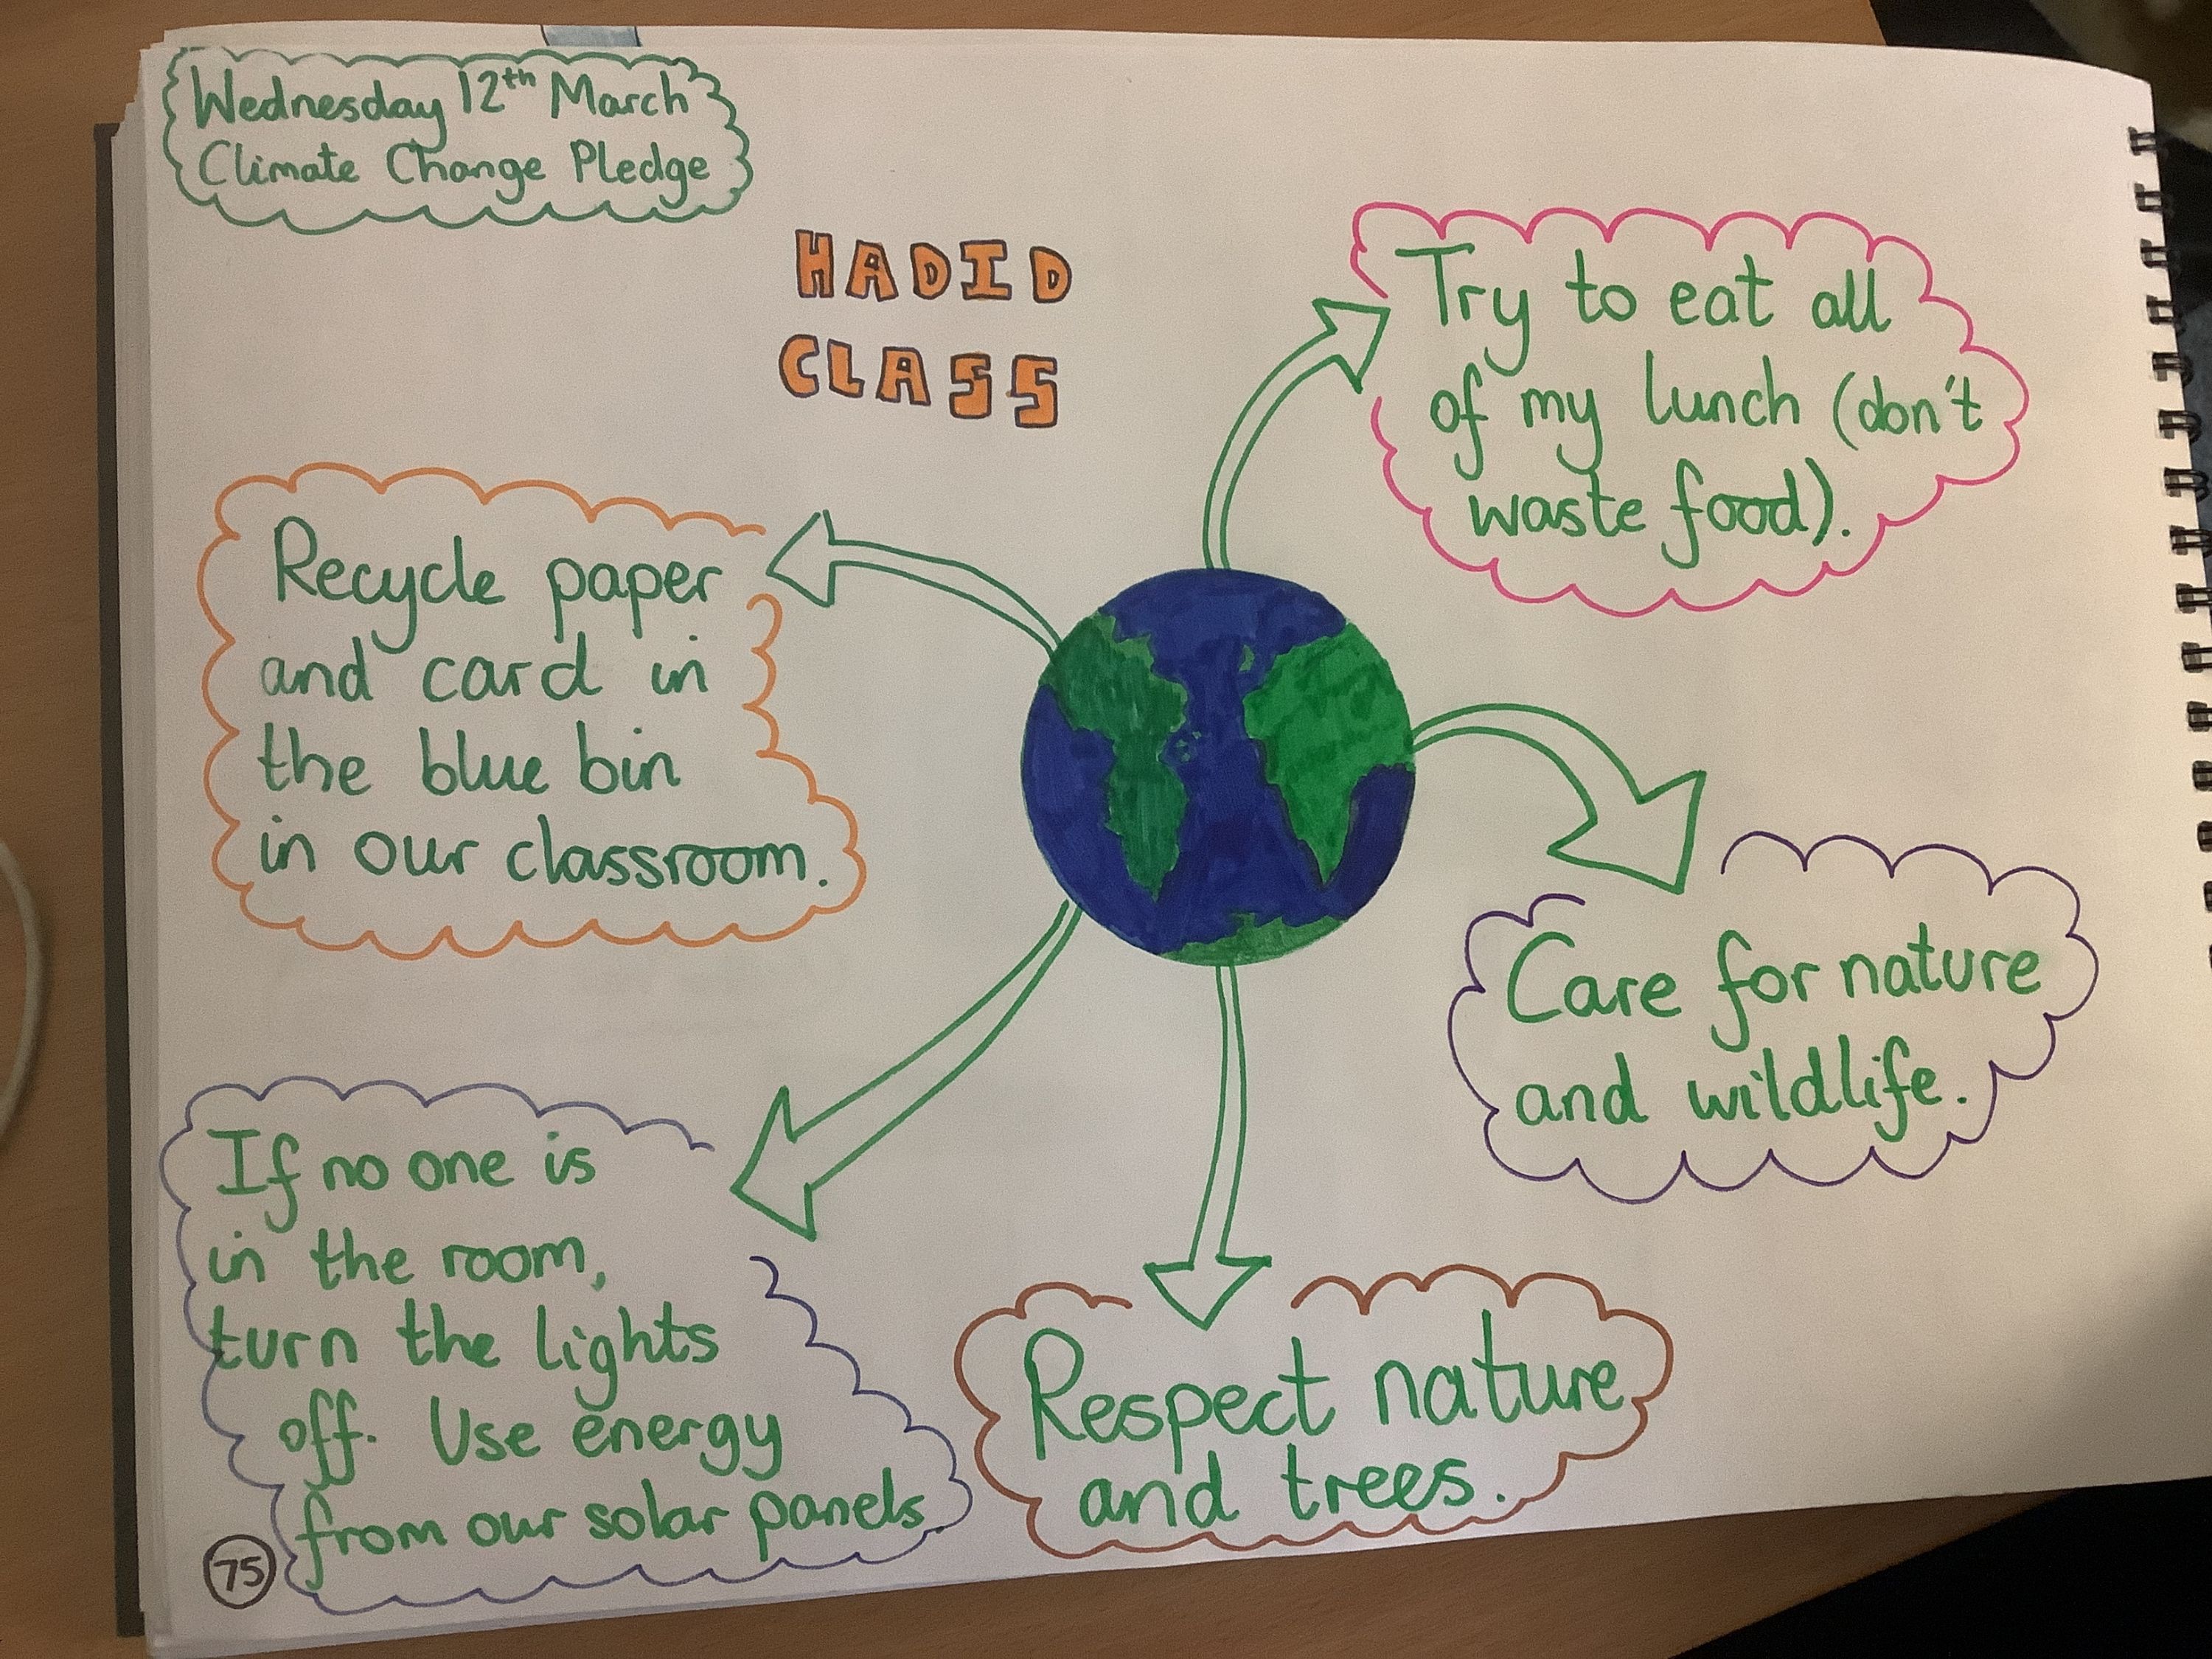 Wednesday 12th March
Climate Change Pledge
HADID
CLASS
Try to eat all
of my lunch (don't
waste food).
Recycle paper
and card in
the blue bin
in our classroom.
Care for nature
and wildlife.
If no one is
in the room,
turn the lights
off. Use energy
from our solar panels.
Respect nature
and trees.
75